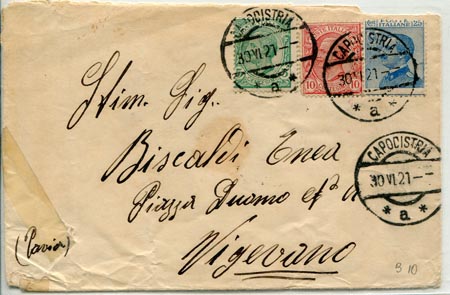 CAPODISTRIA
30 VI 21
* a *
POSTE ITALIANE
10 10
CAPODISTRIA
30 VI 21
* a *
ITALIANE
25
CAPODISTRIA
30 VI 21
* a *
Stim. Sig.
Biscaldi Enea
Piazza Duomo
(Pavia)
Vigevano